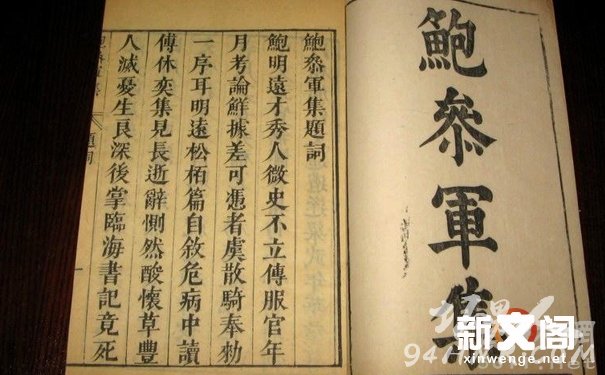 鮑叅軍集
鮑叅軍集題詞
鮑明遠才秀人微史不立傳服官年
月考論鮮據差可憑者虞散騎奉勑
一序耳明遠松栢篇自敘危病中讀
傅休奕集見長逝辭惻然酸懷草豐
人滅憂生良深後掌臨海書記竟死
題詞
一
新文阁
xinwenge.net